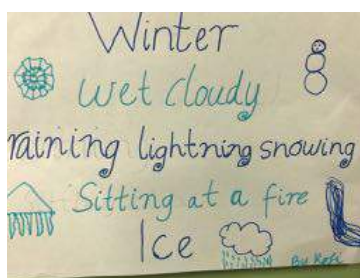 Winter
wet cloudy
raining lightning snowing
Sitting at a fire
Ice